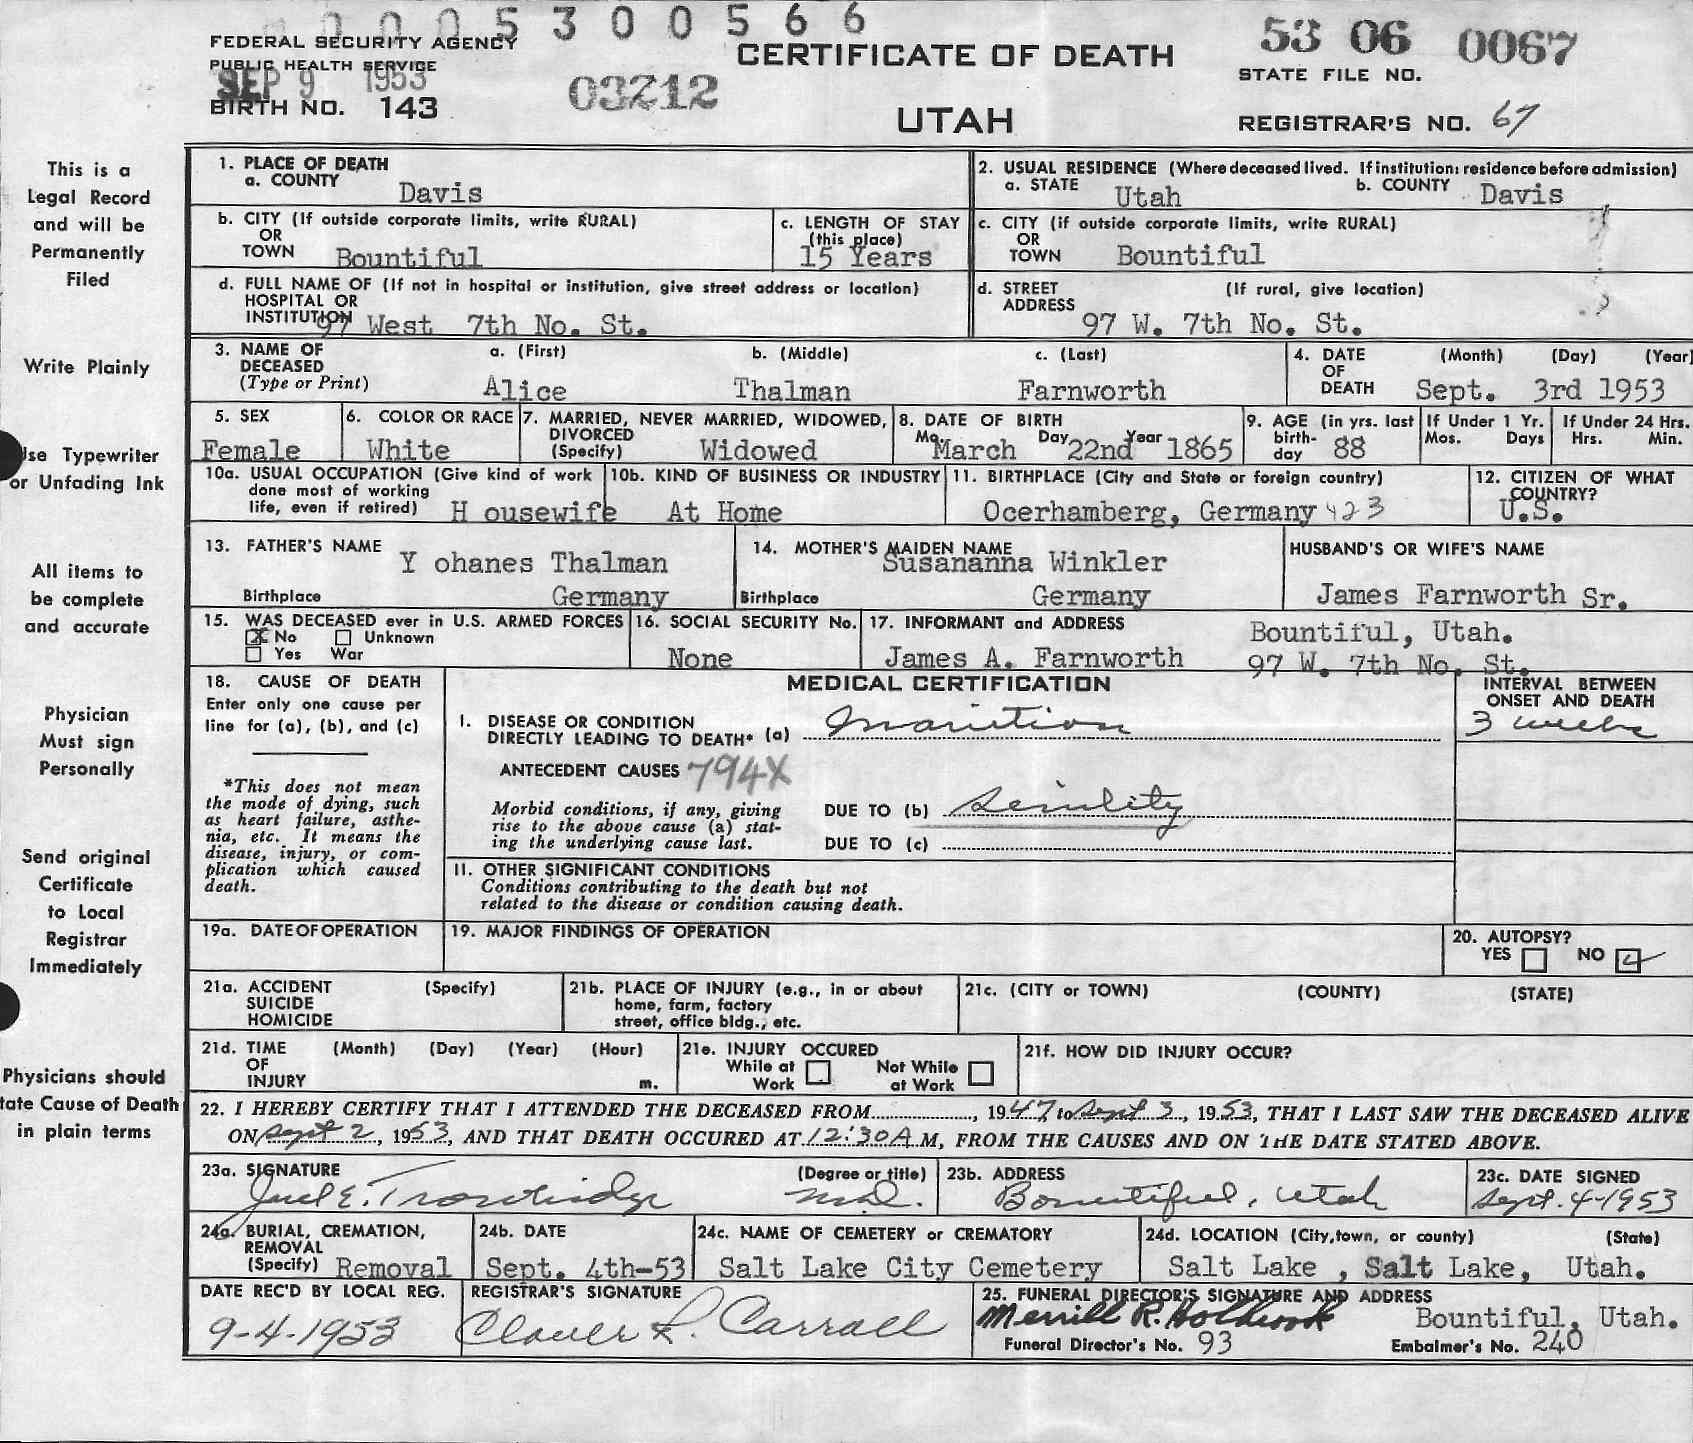 0005300566
FEDERAL SECURITY AGENCY
PUBLIC HEALTH SERVICE
SEP 9 1953
BIRTH NO. 143
03212
CERTIFICATE OF DEATH
UTAH
53 06 0067
STATE FILE NO.
REGISTRAR'S NO. 67
This is a
Legal Record
and will be
Permanently
Filed
Write Plainly
Use Typewriter
or Unfading Ink
All items to
be complete
and accurate
Physician
Must sign
Personally
Send original
Certificate
to Local
Registrar
Immediately
Physicians should
tate Cause of Death
in plain terms
1. PLACE OF DEATH
a. COUNTY Davis
2. USUAL RESIDENCE (Where deceased lived. If institution: residence before admission)
a. STATE Utah b. COUNTY Davis
b. CITY (If outside corporate limits, write RURAL)
OR
TOWN Bountiful
c. LENGTH OF STAY
(this place)
15 Years
c. CITY (if outside corporate limits, write RURAL)
OR
TOWN Bountiful
d. FULL NAME OF (If not in hospital or institution, give street address or location)
HOSPITAL OR
INSTITUTION 97 West 7th No. St.
d. STREET (If rural, give location)
ADDRESS 97 W. 7th No. St.
3. NAME OF DECEASED
(Type or Print)
a. (First) b. (Middle) c. (Last)
Alice Thalman Farnworth
4. DATE OF DEATH (Month) (Day) (Year)
Sept. 3rd 1953
5. SEX
Female
6. COLOR OR RACE
White
7. MARRIED, NEVER MARRIED, WIDOWED,
DIVORCED
(Specify) Widowed
8. DATE OF BIRTH
Mo. March Day 22nd Year 1865
9. AGE (in yrs. last
birth-
day 88
If Under 1 Yr.
Mos. Days
If Under 24 Hrs.
Hrs. Min.
10a. USUAL OCCUPATION (Give kind of work
done most of working
life, even if retired) H ousewife
10b. KIND OF BUSINESS OR INDUSTRY
At Home
11. BIRTHPLACE (City and State or foreign country)
Ocerhamberg, Germany 423
12. CITIZEN OF WHAT
COUNTRY?
U.S.
13. FATHER'S NAME Y ohanes Thalman
Birthplace Germany
14. MOTHER'S MAIDEN NAME
Susananna Winkler
Birthplace Germany
HUSBAND'S OR WIFE'S NAME
James Farnworth Sr.
15. WAS DECEASED ever in U.S. ARMED FORCES
X No Unknown
Yes War
16. SOCIAL SECURITY No.
None
17. INFORMANT and ADDRESS
James A. Farnworth
Bountiful, Utah.
97 W. 7th No. St.
18. CAUSE OF DEATH
Enter only one cause per
line for (a), (b), and (c)
*This does not mean
the mode of dying, such
as heart failure, asthe-
nia, etc. It means the
disease, injury, or com-
plication which caused
death.
MEDICAL CERTIFICATION
INTERVAL BETWEEN
ONSET AND DEATH
I. DISEASE OR CONDITION
DIRECTLY LEADING TO DEATH* (a) Inanition
3 weeks
ANTECEDENT CAUSES 794X
Morbid conditions, if any, giving
rise to the above cause (a) stat-
ing the underlying cause last.
DUE TO (b) Senility
DUE TO (c)
II. OTHER SIGNIFICANT CONDITIONS
Conditions contributing to the death but not
related to the disease or condition causing death.
19a. DATE OF OPERATION
19. MAJOR FINDINGS OF OPERATION
20. AUTOPSY?
YES NO
21a. ACCIDENT (Specify)
SUICIDE
HOMICIDE
21b. PLACE OF INJURY (e.g., in or about
home, farm, factory
street, office bldg., etc.
21c. (CITY or TOWN) (COUNTY) (STATE)
21d. TIME (Month) (Day) (Year) (Hour)
OF
INJURY m.
21e. INJURY OCCURED
While at Work Not While at Work
21f. HOW DID INJURY OCCUR?
22. I HEREBY CERTIFY THAT I ATTENDED THE DECEASED FROM, 1947, to Sept 3, 1953, THAT I LAST SAW THE DECEASED ALIVE
ON Sept 2, 1953, AND THAT DEATH OCCURED AT 12:30 A M, FROM THE CAUSES AND ON THE DATE STATED ABOVE.
23a. SIGNATURE (Degree or title)
Joel E. Trowbridge M.D.
23b. ADDRESS
Bountiful, Utah
23c. DATE SIGNED
Sept. 4-1953
24a. BURIAL, CREMATION,
REMOVAL
(Specify) Removal
24b. DATE
Sept. 4th-53
24c. NAME OF CEMETERY or CREMATORY
Salt Lake City Cemetery
24d. LOCATION (City, town, or county) (State)
Salt Lake , Salt Lake, Utah.
DATE REC'D BY LOCAL REG.
9-4-1953
REGISTRAR'S SIGNATURE
Clover L. Carroll
25. FUNERAL DIRECTOR'S SIGNATURE AND ADDRESS
Merrill R. Holbrook Bountiful, Utah.
Funeral Director's No. 93 Embalmer's No. 240